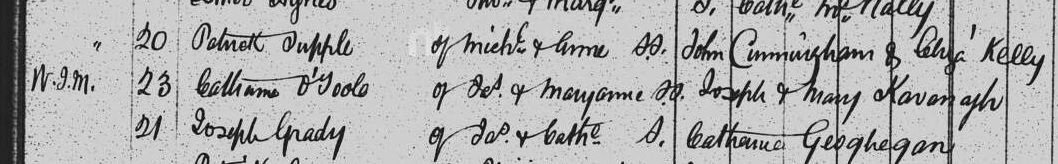 Thos. & Marg. S. Cathe. McNally
" 20 Patrick Supple of Michl. & Anne SS. John Cunningham & Eliza Kelly
W.J.M. 23 Catharine O'Toole of Jas. & Maryanne SS. Joseph & Mary Kavanagh
21 Joseph Grady of Jas. & Cathe. S. Catharine Geoghegan